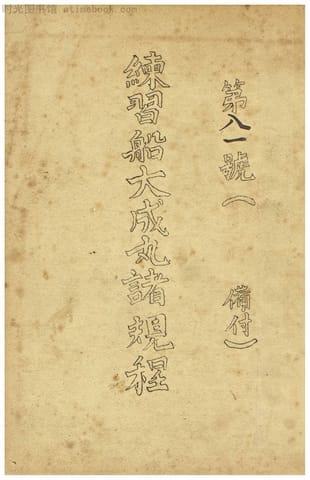 时光图书馆 atimebook.com
第八一號（ 備付）
練習船大成丸諸規程